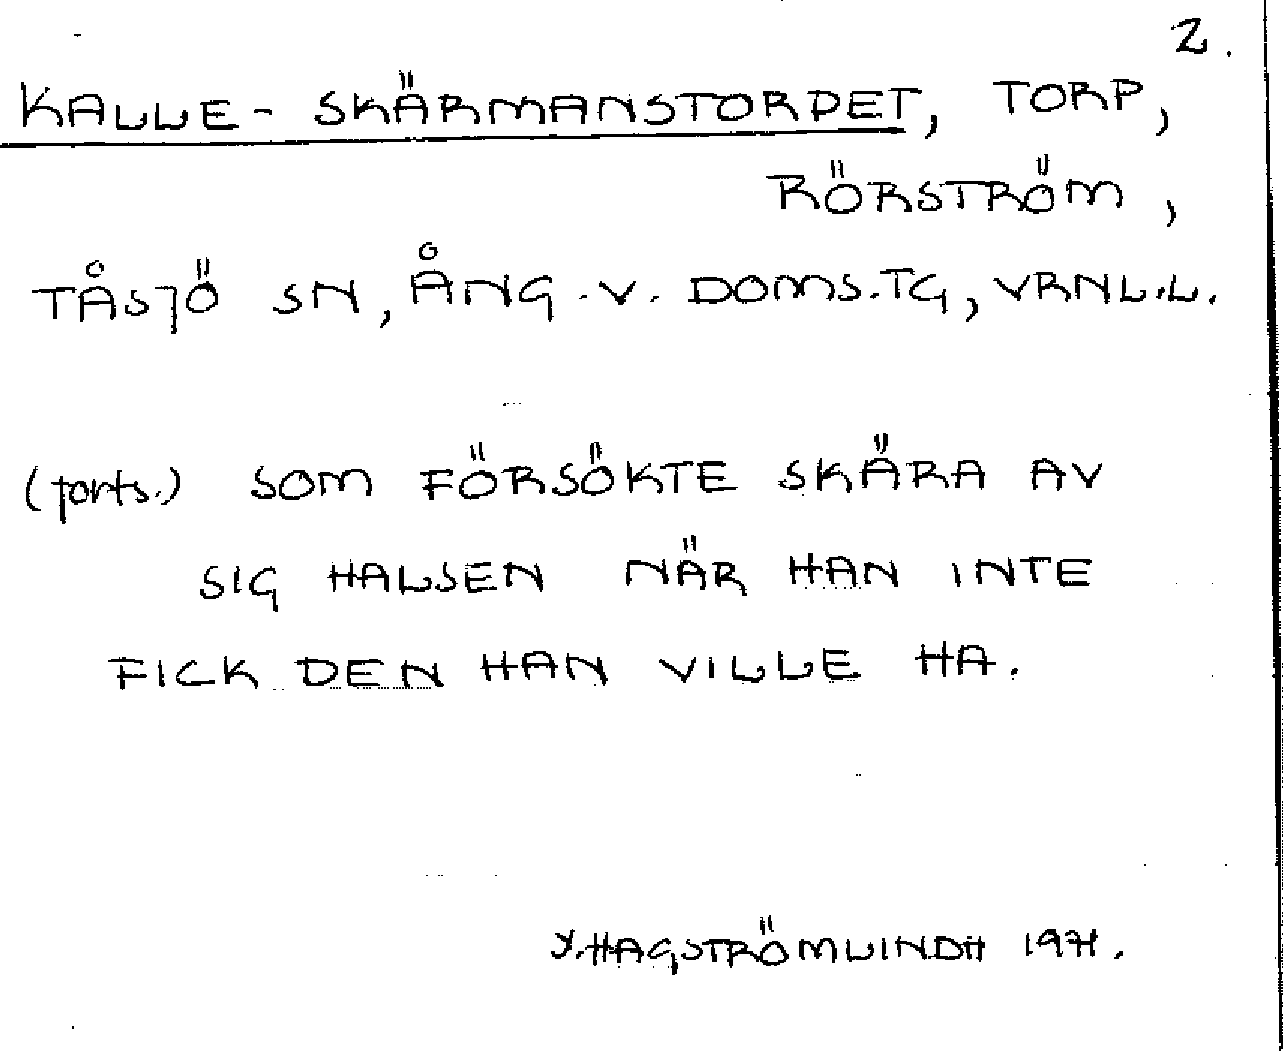 2.
KALLE-SKÄRMANSTORPET, TORP,
RÖRSTRÖM,
TÅSJÖ SN, ÅNG.V. DOMS.TG, VRNL.L.
(forts.) SOM FÖRSÖKTE SKÄRA AV
SIG HALSEN NÄR HAN INTE
FICK DEN HAN VILLE HA.
Y. HAGSTRÖM LINDH 1971.